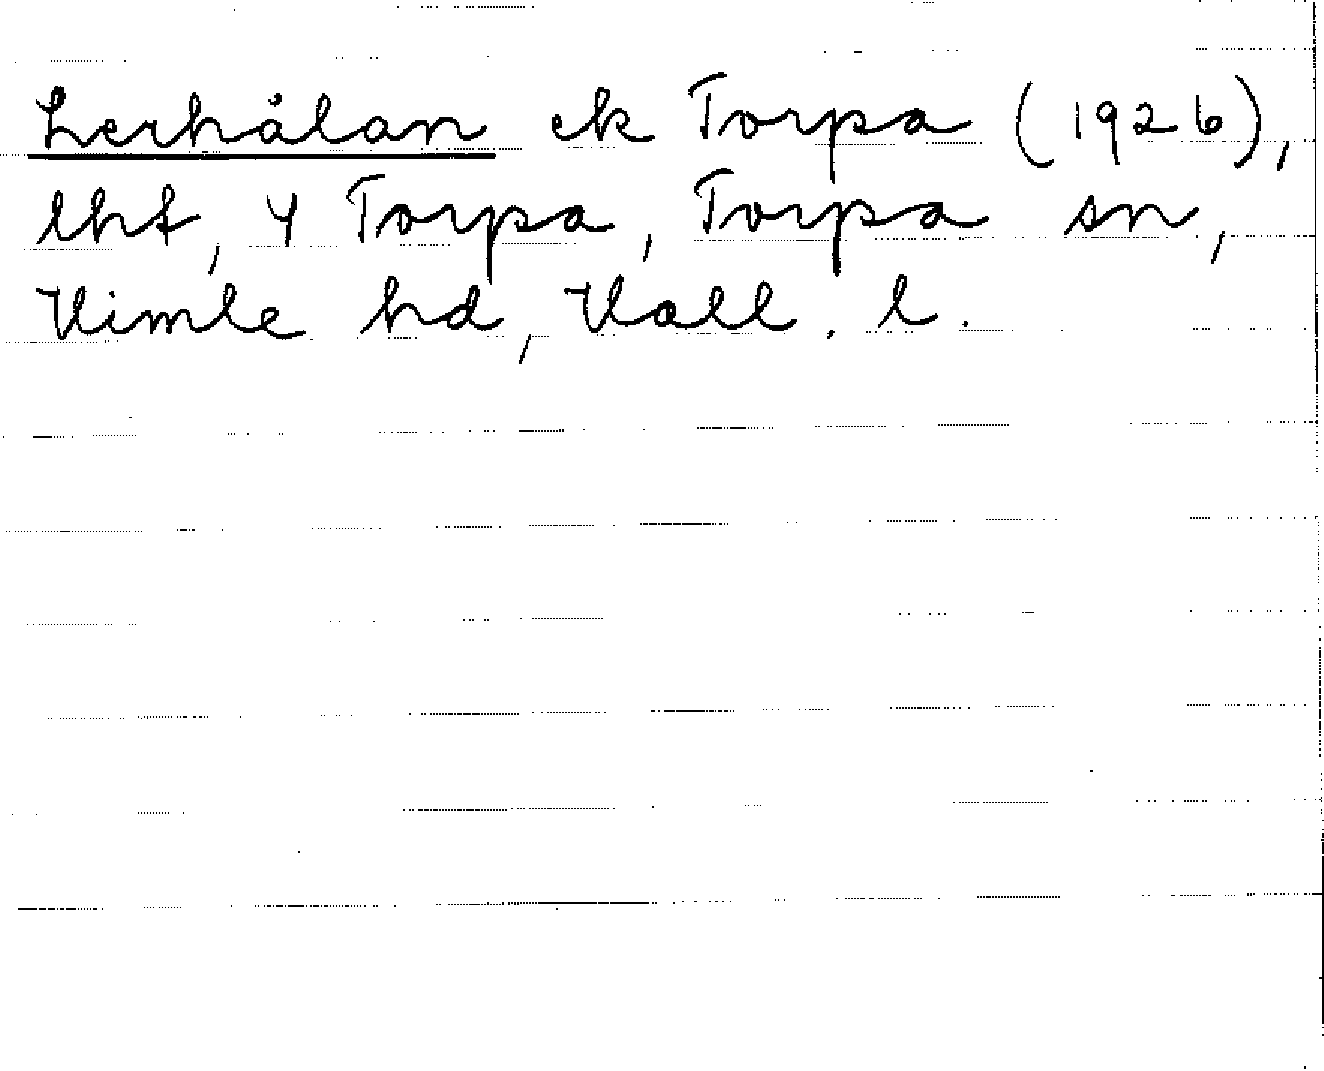 Lerhålan ek Torpa (1926),
lht, 4 Torpa, Torpa sn,
Himle hd, Hall. l.